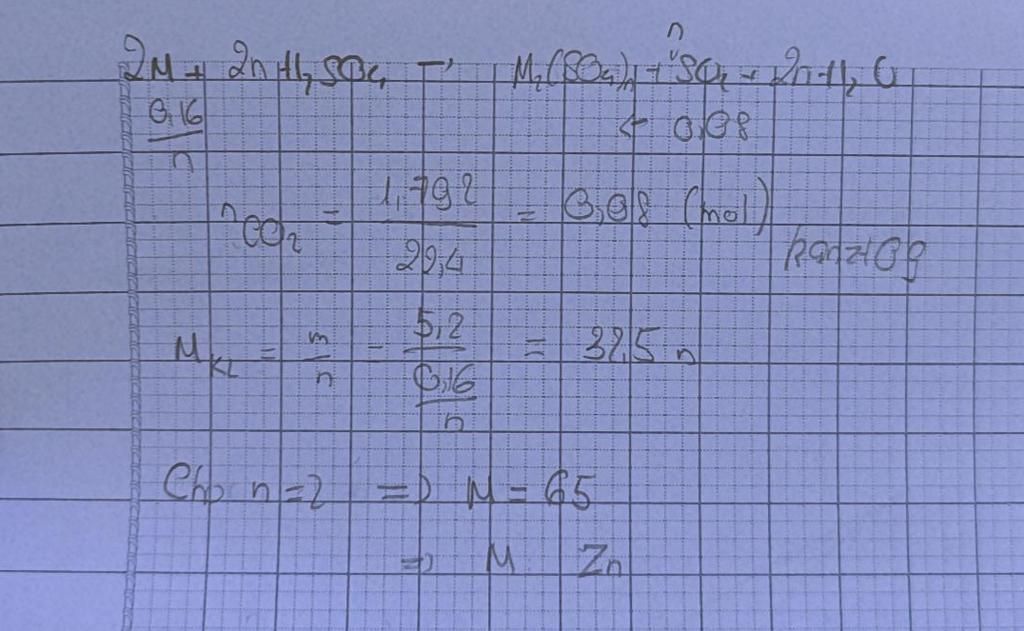 2M + 2nH₂SO₄ → M₂(SO₄)n + nSO₂ + 2nH₂O
0,16/n ← 0,08
nCO₂ = 1,792/22,4 = 0,08 (mol)
M_KL = m/n = 5,2/(0,16/n) = 32,5 n
Cho n=2 => M = 65
=> M Zn